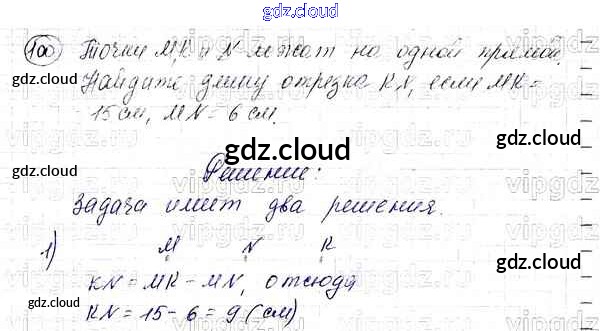 gdz.cloud
100 Точки M, K и N лежат на одной прямой.
Найдите длину отрезка KN, если MK =
15 см, MN = 6 см.
gdz.cloud
Решение:
Задача имеет два решения.
1) M N K
KN = MK - MN, отсюда
KN = 15 - 6 = 9 (см)
gdz.cloud gdz.cloud